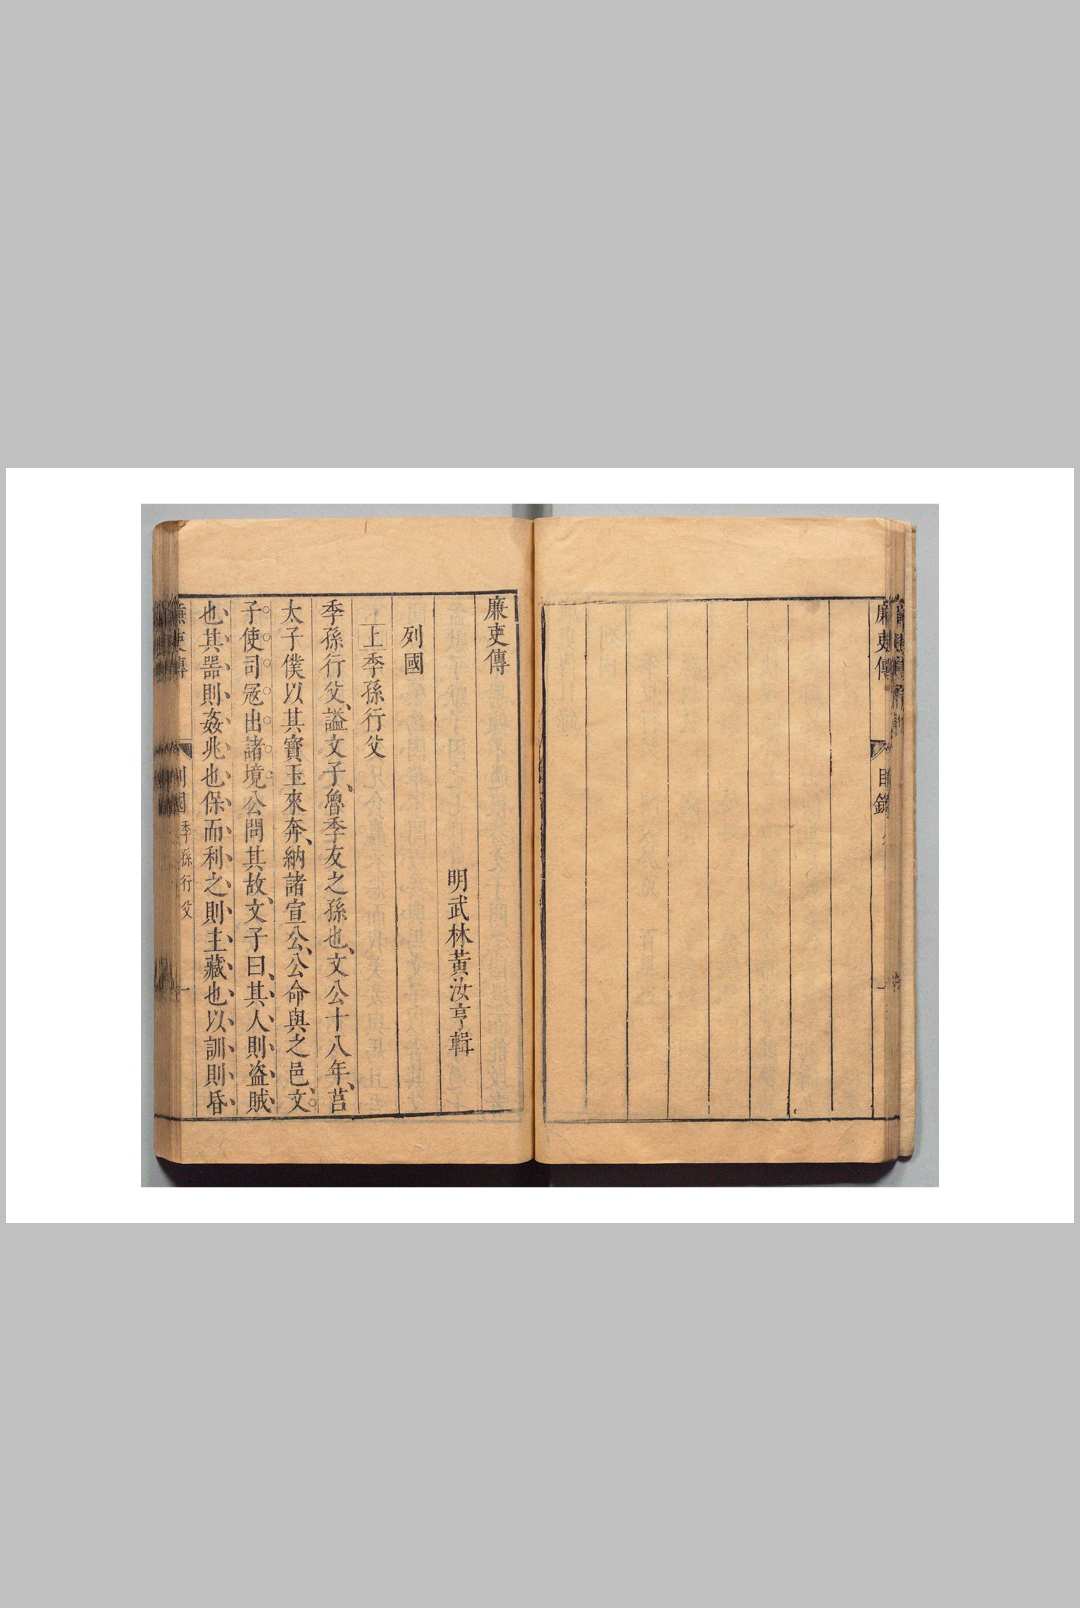 廉吏傳
目錄
廉吏傳
明武林黃汝亨輯
列國
上季孫行父
季孫行父、謚文子、魯季友之孫也、文公十八年、莒
太子僕以其寶玉來奔、納諸宣公、公命與之邑、文
子使司寇出諸境公問其故、文子曰、其人則盜賊
也、其器則姦兆也保而利之則主藏也以訓則昏
廉吏傳
列國
季孫行父
一